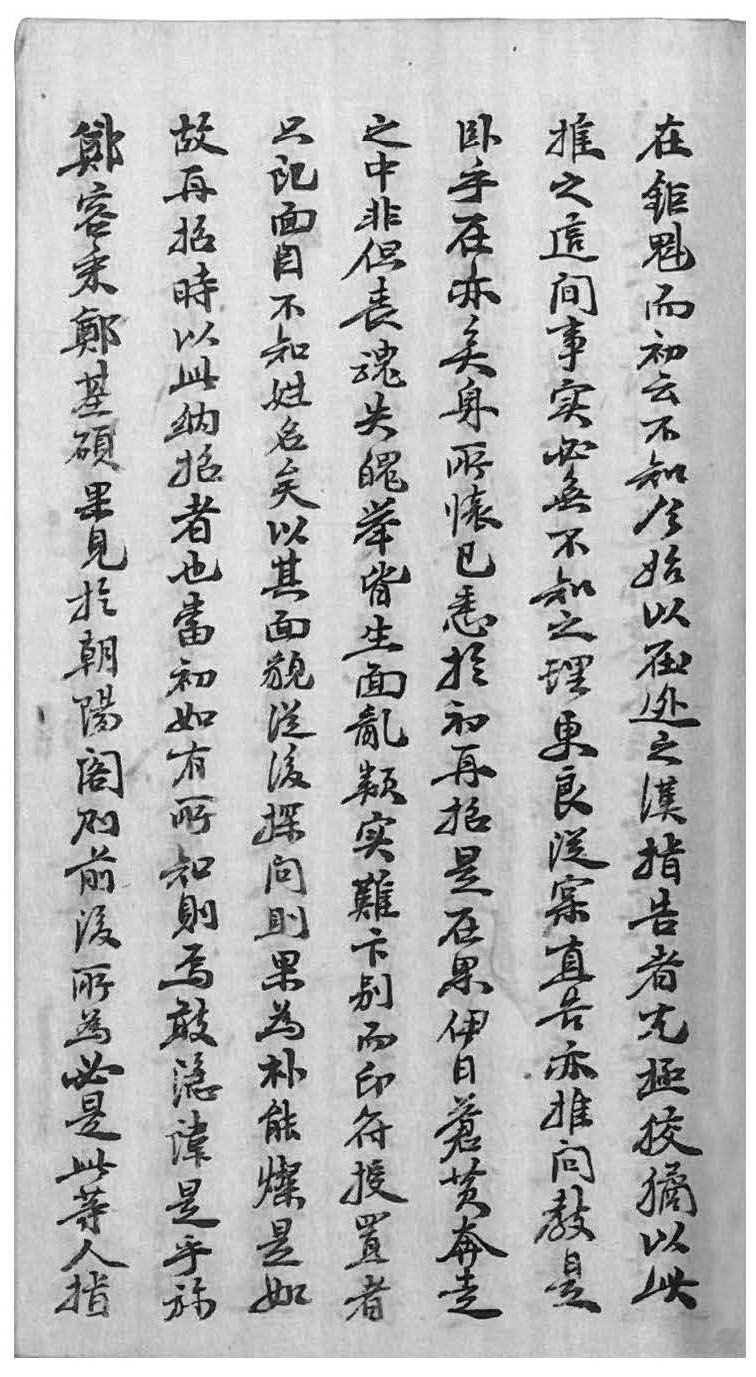 在鉅魁而初云不知今始以在逃之漢指告者尤極狡獝以此
推之這間事实必無不知之理更良從寀直告亦推问敎是
卧乎在亦矣身所懐已悉扵初再招是在果伊日蒼黄奔走
之中非但丧魂失魄举皆生面乱類实難卞别而印符授置者
只記面目不知姓名矣以其面貌從後探问則果為朴能燦是如
故再招時以此納招者也當初如有所知則焉敢隠諱是乎旀
鄭容秉鄭基碩果見扵朝陽阁則前後所為必是此等人指